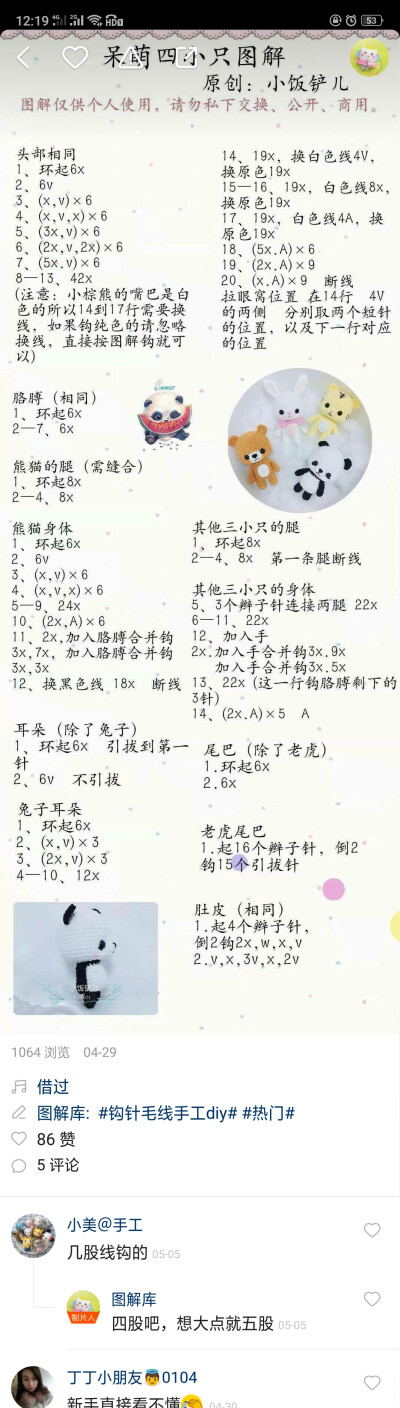 12:19
53
呆萌四小只图解
原创：小饭铲儿
图解仅供个人使用，请勿私下交换、公开、商用。
头部相同
1、环起6x
2、6v
3、(x,v)×6
4、(x,v,x)×6
5、(3x,v)×6
6、(2x,v,2x)×6
7、(5x.v)×6
8—13、42x
(注意：小棕熊的嘴巴是白
色的所以14到17行需要换
线，如果钩纯色的请忽略
换线，直接按图解钩就可
以)
14、19x，换白色线4V，
换原色19x
15—16、19x，白色线8x，
换原色19x
17、19x，白色线4A，换
原色19x
18、(5x.A)×6
19、(2x.A)×9
20、(x.A)×9 断线
拉眼窝位置 在14行 4V
的两侧 分别取两个短针
的位置，以及下一行对应
的位置
胳膊（相同）
1、环起6x
2—7、6x
熊猫的腿（需缝合）
1、环起8x
2—4、8x
熊猫身体
1、环起6x
2、6v
3、(x,v)×6
4、(x,v,x)×6
5—9、24x
10、(2x,A)×6
11、2x,加入胳膊合并钩
3x,7x，加入胳膊合并钩
3x,3x
12、换黑色线 18x 断线
其他三小只的腿
1、环起8x
2—4、8x 第一条腿断线
其他三小只的身体
5、3个辫子针连接两腿 22x
6—11、22x
12、加入手
2x.加入手合并钩3x.9x
加入手合并钩3x.5x
13、22x（这一行钩胳膊剩下的
3针)
14、(2x.A)×5 A
耳朵（除了兔子）
1、环起6x 引拔到第一
针
2、6v 不引拔
尾巴（除了老虎）
1.环起6x
2.6x
兔子耳朵
1、环起6x
2、(x,v)×3
3、(2x,v)×3
4—10、12x
老虎尾巴
1.起16个辫子针，倒2
钩15个引拔针
肚皮（相同）
1.起4个辫子针，
倒2钩2x,w,x,v
2.v,x,3v,x,2v
1064 浏览 04-29
借过
图解库: #钩针毛线手工diy# #热门#
86 赞
5 评论
小美@手工
几股线钩的 05-05
图解库
制片人
四股吧，想大点就五股 05-05
丁丁小朋友👼0104
新手直接看不懂 04-30